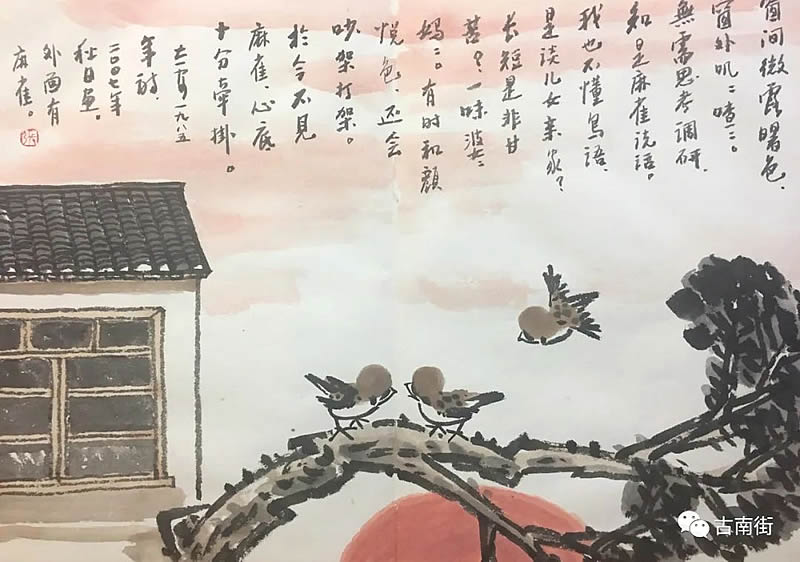 窗间微露曙色、
窗外叽二喳二。
無需思考调研、
知是麻雀说话。
我也不懂鸟语、
是谈儿女亲家？
长短是非甘
苦？一味婆二
妈二。有时和颜
悦色、还会
吵架打架。
於今不见
麻雀、心底
十分牵掛。
一九八五
年诗.
二〇〇七年
秋日画。
外面有
麻雀。
古南街